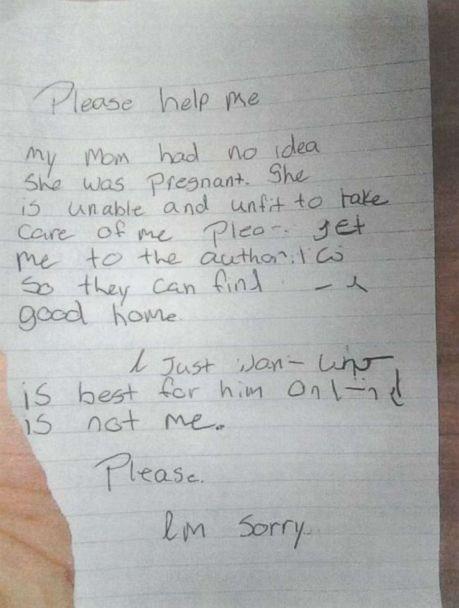 Please help me
my mom had no idea
She was Pregnant. She
is unable and unfit to take
care of me get
me to the
So they can find
good home
I Just
is best for him
is not me.
Please.
Im Sorry